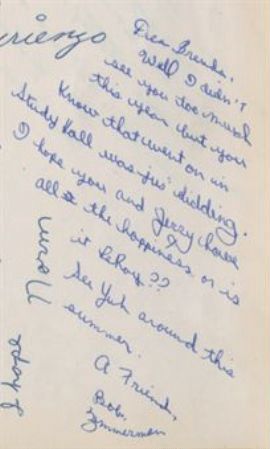 rienzo
Dear Brenda,
Well I didn't
see you too much
this year but you
Know that went on in
Study Hall was jus' kidding.
I hope you and Jerry have
all the happiness or is
it LeRoy??
See Yuh around this
summer.
A Friend,
Bob
Zimmerman
Norm